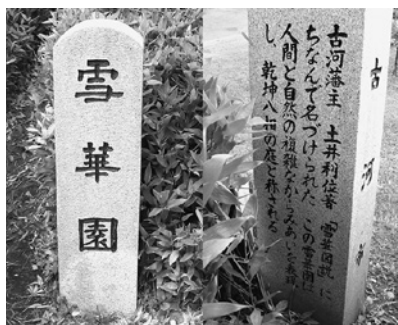 雪華園
古河藩主 土井利位著「雪華図説」に
ちなんで名づけられた この雪華園は
人間と自然の複雑なからみあいを表現
し、乾坤八相の庭と称される
古河